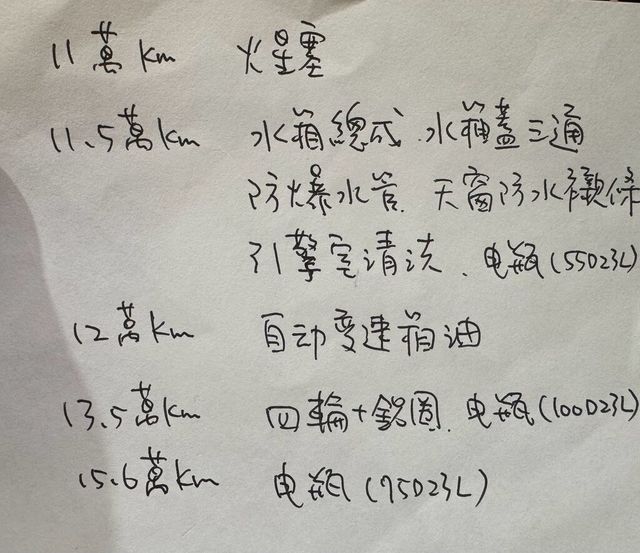 11萬km 火星塞
11.5萬km 水箱總成.水箱蓋三通
防爆水管.天窗防水襯條
引擎室清洗.电瓶(55D23L)
12萬km 自动变速箱油
13.5萬km 四輪+鋁圈.电瓶(100D23L)
15.6萬km 电瓶(75D23L)